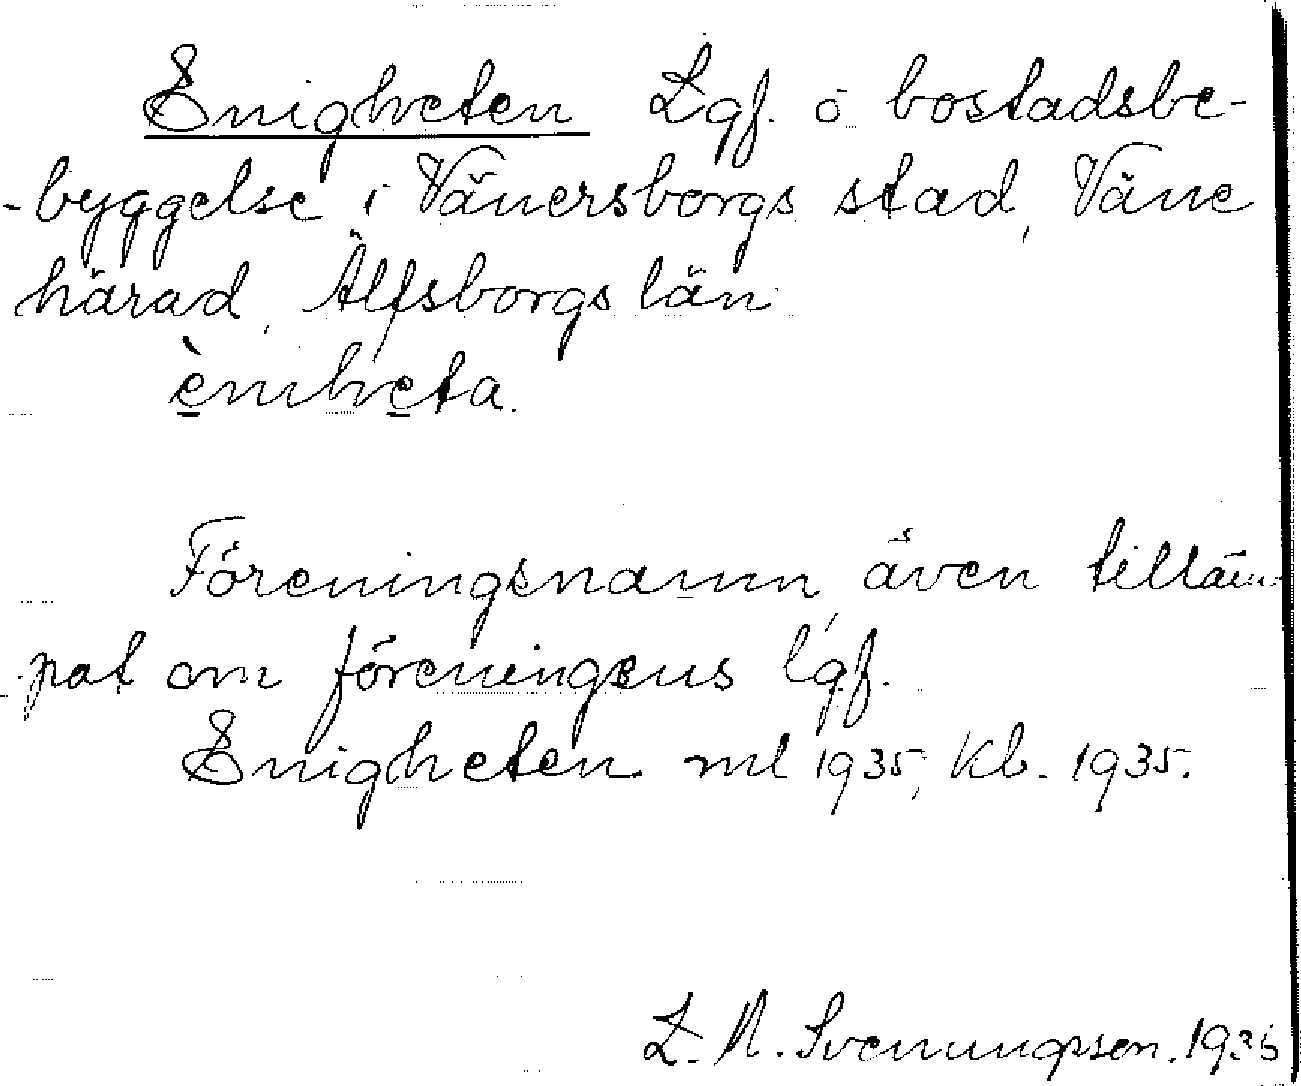 Enigheten Lgf. o bostadsbe-
-byggelse i Vänersborgs stad, Väne
härad, Älfsborgs län
ènıheta.
Föreningsnamn, även tilläm-
pat om föreningens lgf.
Enigheten ml 1935, Kb. 1935.
L. A. Svenungsson. 1935